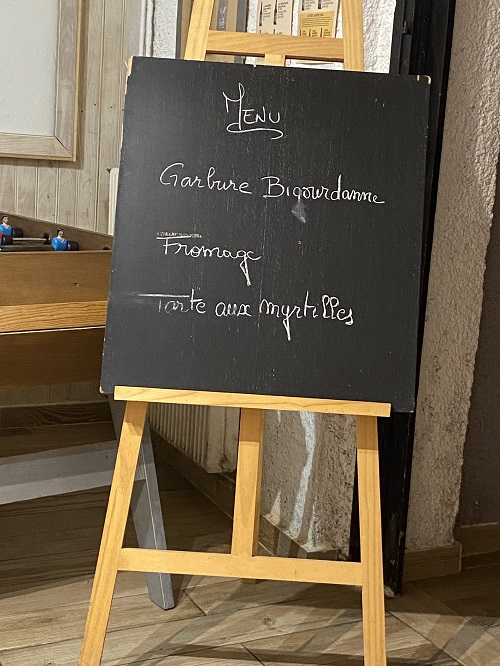 Menu
Garbure Bigourdanne
Fromage
Tarte aux myrtilles